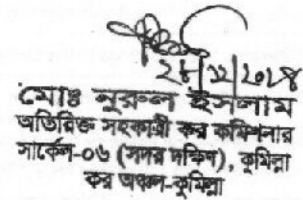 ২৪|১১|২০২৪
মোঃ নুরুল ইসলাম
অতিরিক্ত সহকারী কর কমিশনার
সার্কেল-০৬ (সদর দক্ষিণ), কুমিল্লা
কর অঞ্চল-কুমিল্লা